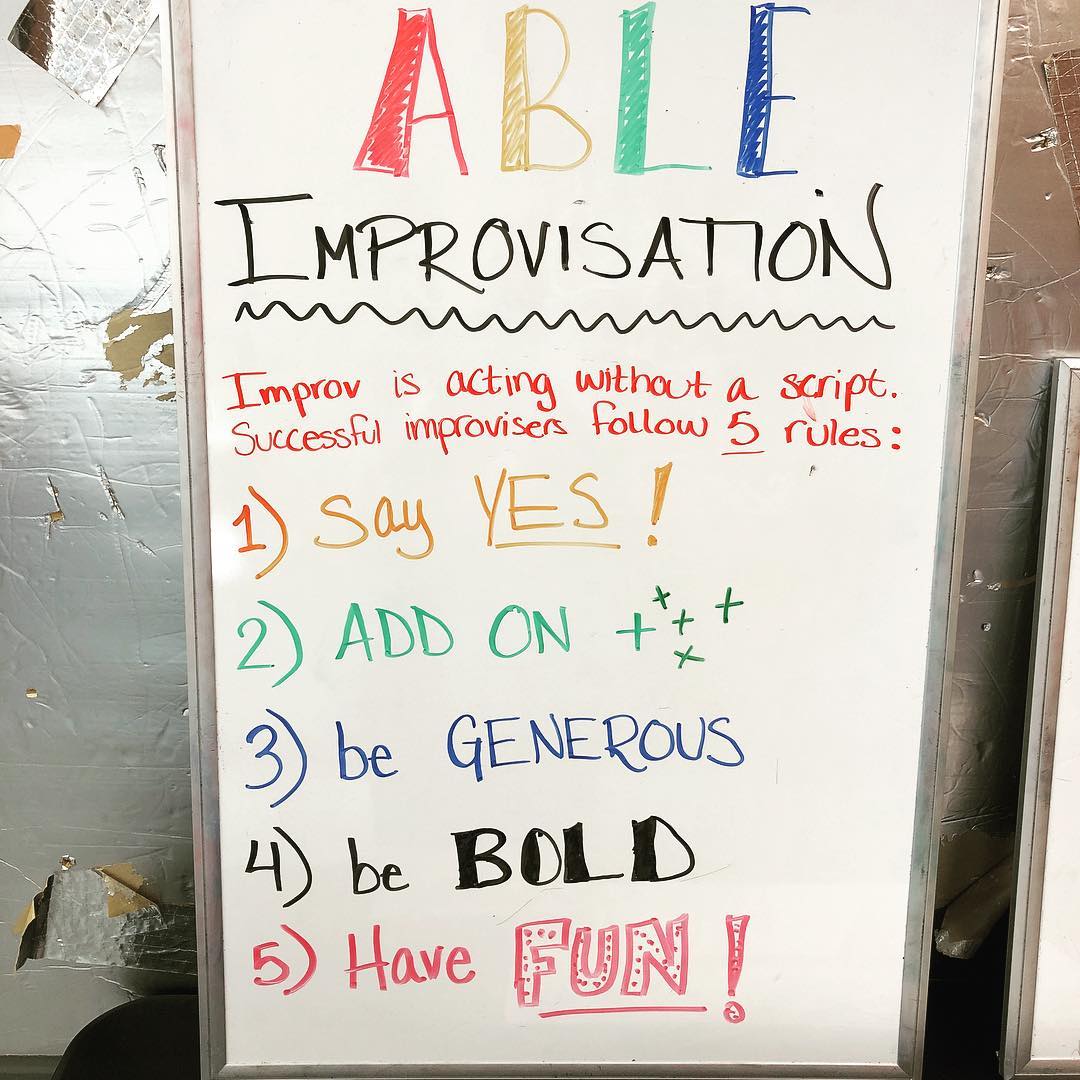 ABLE
IMPROVISATION
Improv is acting without a script.
Successful improvisers follow 5 rules:
1) Say YES!
2) ADD ON +++++
3) be GENEROUS
4) be BOLD
5) Have FUN!